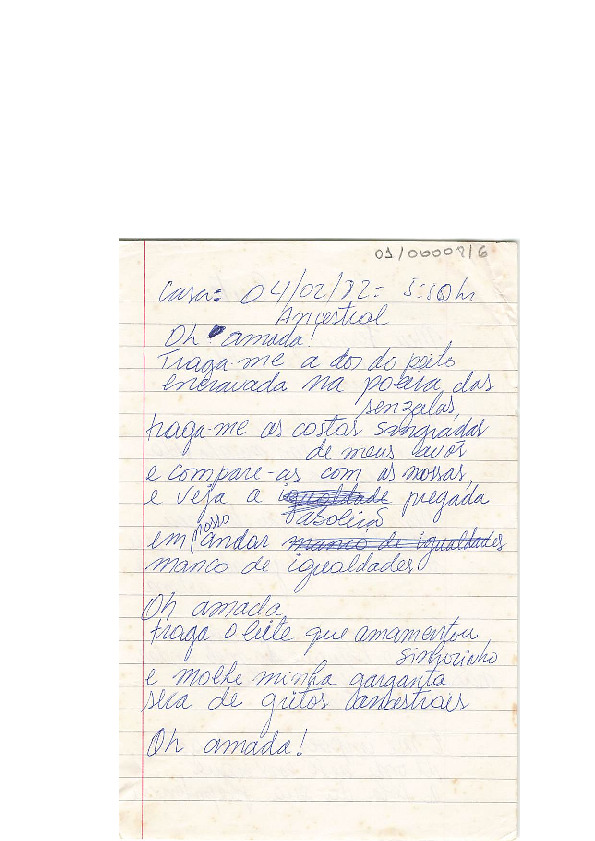 01/000091/6
Casa: 04/02/82 = 5:30hs
Ancestral
Oh amada!
Traga-me a dor do peito
encravada na poeira das
senzalas,
traga-me as costas sangradas
de meus avós
e compare-as com as nossas,
e veja a igualdade pregada
em nosso andar manco de igualdades
manco de igualdades
Oh amada,
traga o leite que amamentou
sinhozinho
e molhe minha garganta
seca de gritos ancestrais
Oh amada!